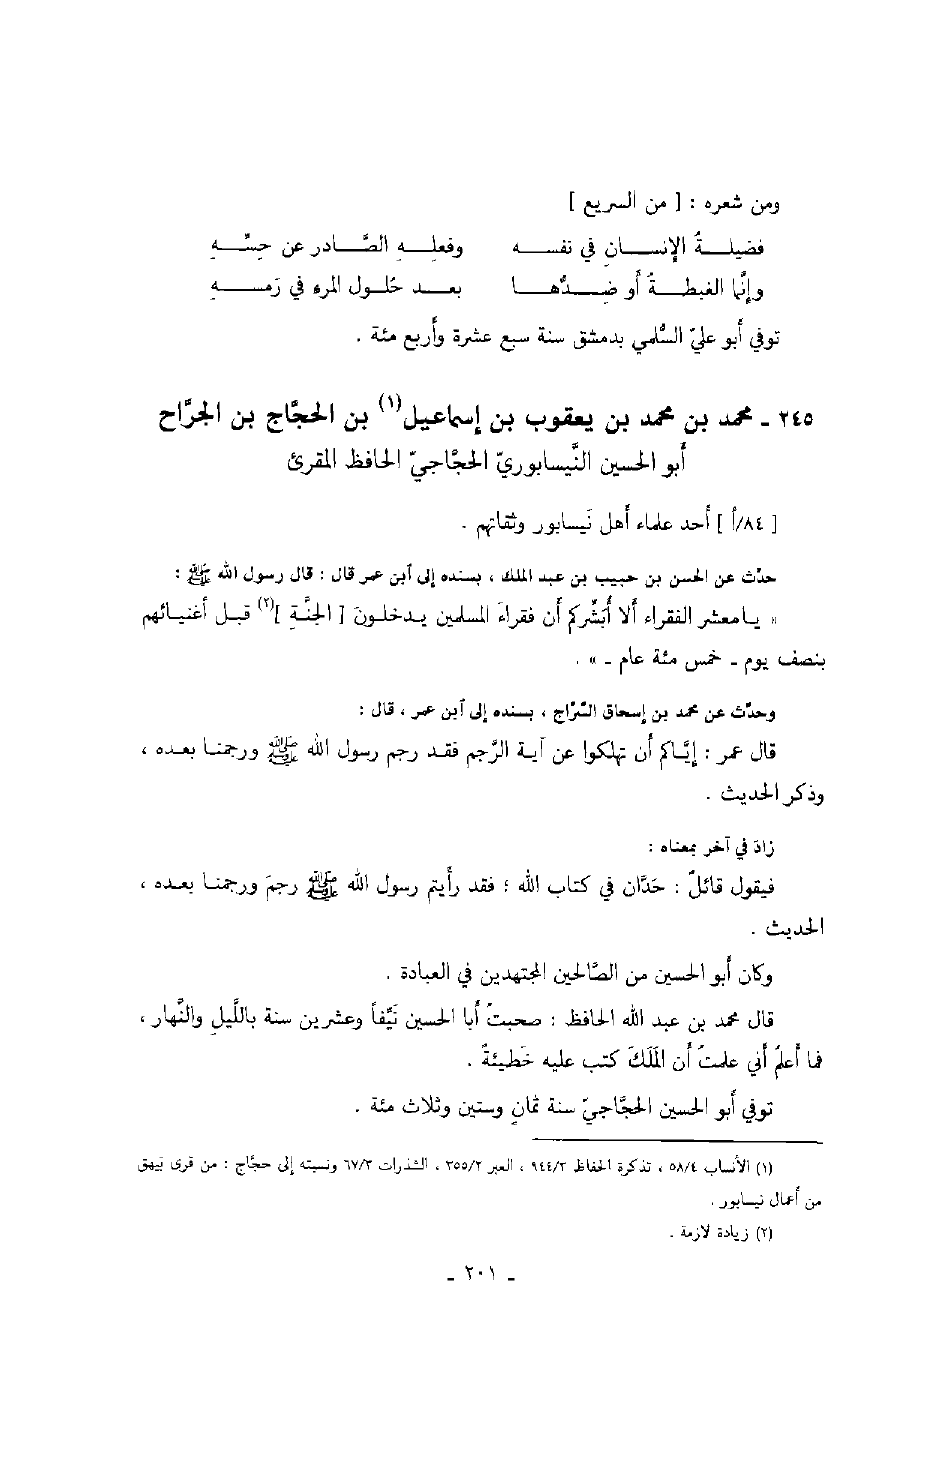 ومن شعره : [ من السريع ]
فضيلـــةُ الإنســـانِ في نفســـه وفعلِـــهِ الصَّـــادرِ عن حِسِّـــهِ
وإنَّما الغبطـــةُ أو ضِـــدُّهـــا بعـــد حُلـــول المرء في رَمســـهِ
توفي أبو عليّ السُّلمي بدمشق سنة سبع عشرة وأربع مئة .
٢٤٥ ـ محمد بن محمد بن يعقوب بن إسماعيل(١) بن الحجَّاج بن الجرَّاح
أبو الحسين النَّيسابوريّ الحجَّاجيّ الحافظ المقرئ
[ ٨٤/أ ] أحد علماء أهل نَيسابور وثقاتهم .
حدّث عن الحسن بن حبيب بن عبد الملك ، بسنده إلى ٱبن عمر قال : قال رسول الله ﷺ :
« يـا معشر الفقراء ألا أُبَشِّركم أن فقراءَ المسلمين يـدخلـونَ [ الجنَّةِ ](٢) قبـل أغنيـائهم
بنصف يوم ـ خمس مئة عام ـ » .
وحدّث عن محمد بن إسحاق السَّرّاج ، بسنده إلى ٱبن عمر ، قال :
قال عمر : إيَّـاكم أن تهلكوا عن آيـة الرَّجم فقـد رجم رسول الله ﷺ ورجمنـا بعـده ،
وذكر الحديث .
زادَ في آخر بمعناه :
فيقول قائلٌ : حَدَّان في كتاب الله ؛ فقد رأيتم رسول الله ﷺ رجمَ ورجمنـا بعـده ،
الحديث .
وكان أبو الحسين من الصَّالحين المجتهدين في العبادة .
قال محمد بن عبد الله الحافظ : صحبتُ أبا الحسين نَيِّفاً وعشرين سنة باللَّيلِ والنَّهار ،
فما أعلمُ أني علمتُ أن المَلَكَ كتب عليه خَطيئةً .
توفي أبو الحسين الحجَّاجيّ سنة ثمانٍ وستين وثلاث مئة .
(١) الأنساب ٥٨/٤ ، تذكرة الحفاظ ٩٤٤/٣ ، العبر ٣٥٥/٢ ، الشذرات ٦٧/٣ ونسبته إلى حجَّاج : من قرى بَيهق
من أعمال نيسابور .
(٢) زيادة لازمة .
ـ ٢٠١ ـ